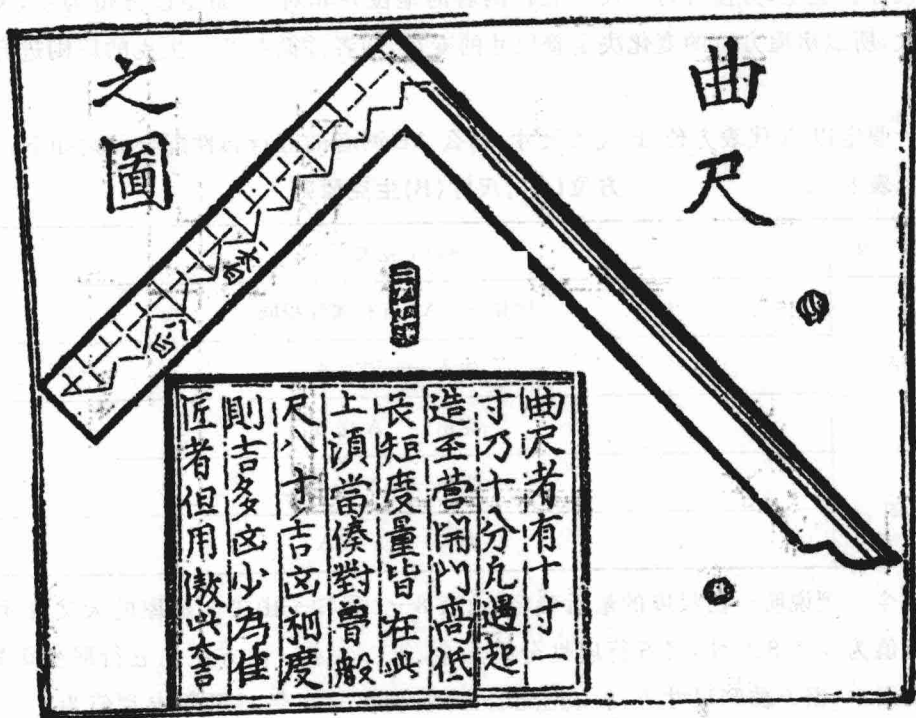 曲尺
之圖
六白
八白
曲尺者有十寸一
寸乃十分凡遇起
造至营開門高低
長短度量皆在此
上須當湊對魯般
尺八寸吉凶相度
則吉多凶少為佳
匠者但用倣此大吉